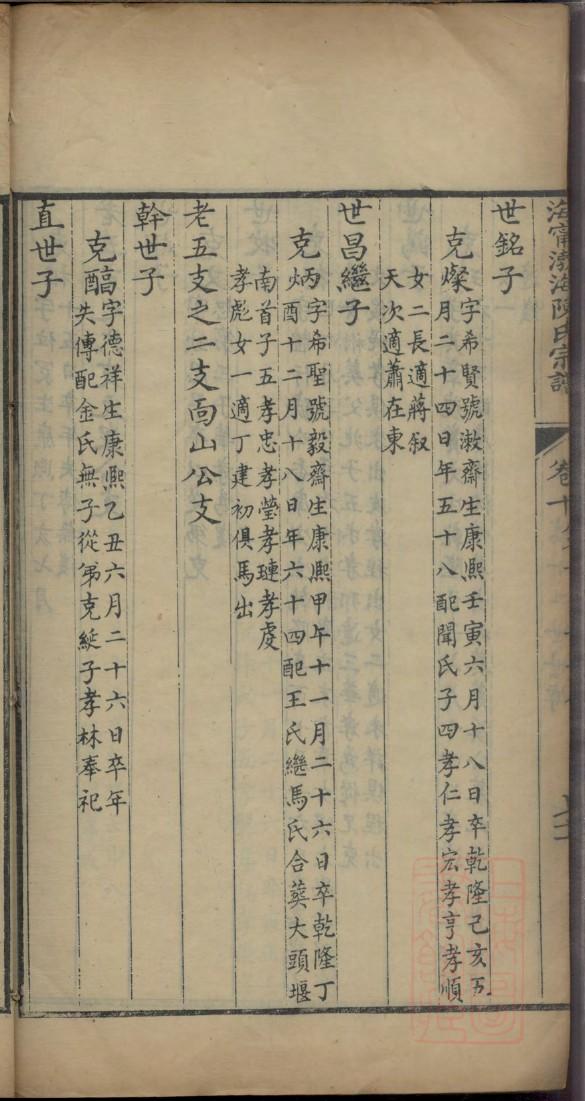 海甯渤海陳氏宗譜
卷十
世銘子
克燦字希賢號漱齋生康熙壬寅六月十八日卒乾隆己亥五
月二十四日年五十八配聞氏子四孝仁孝宏孝亨孝順
女二長適蔣叙
天次適蕭在東
世昌繼子
克炳字希聖號毅齋生康熙甲午十一月二十六日卒乾隆丁
酉十二月十八日年六十四配王氏繼馬氏合葬大頭堰
南首子五孝忠孝瑩孝璉孝虔
孝彪女一適丁建初俱馬出
老五支之二支面山公支
幹世子
克酩字德祥生康熙乙丑六月二十六日卒年
失傳配金氏無子從弟克綖子孝林奉祀
直世子